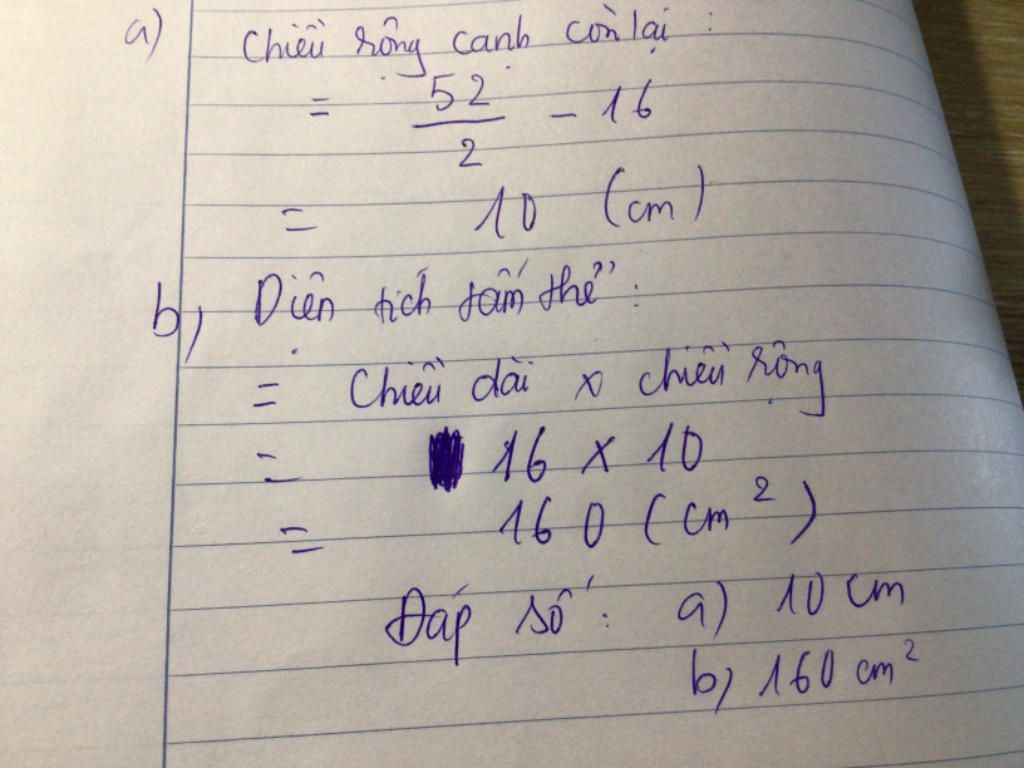 a) Chiều rộng cạnh còn lại :
= 52/2 - 16
= 10 (cm)
b, Diện tích tấm thẻ :
= Chiều dài x chiều rộng
= 16 x 10
= 160 (cm²)
Đáp số : a) 10 cm
b, 160 cm²